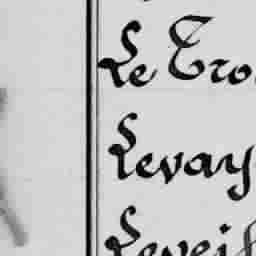 Le Tro
Levay
Levei